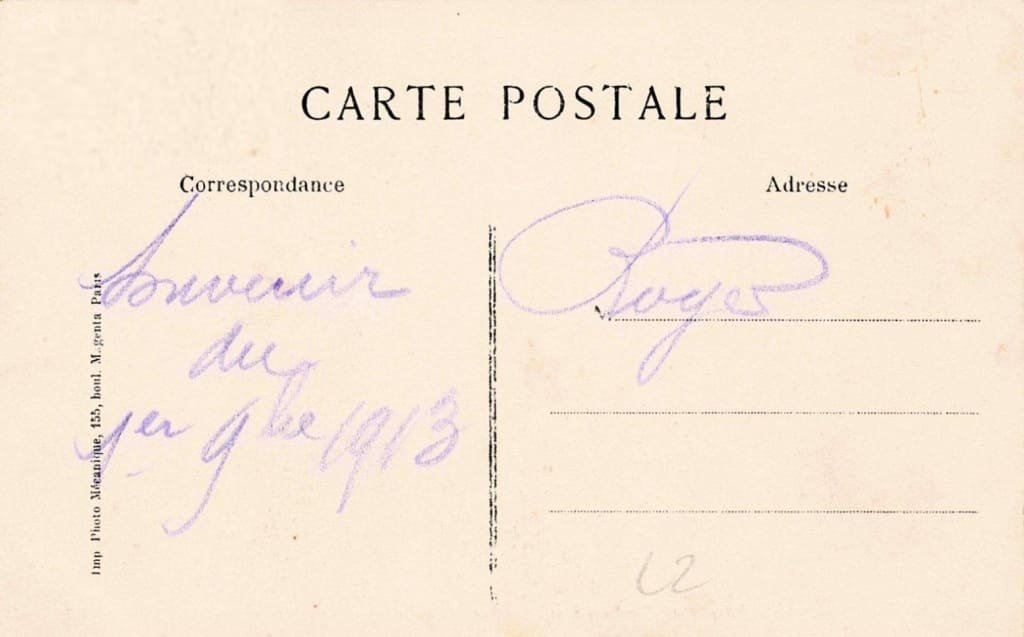 CARTE POSTALE
Correspondance
Adresse
Souvenir
du
1er 9bre 1913
Roger
Imp Photo Mécanique, 155, boul. Magenta Paris